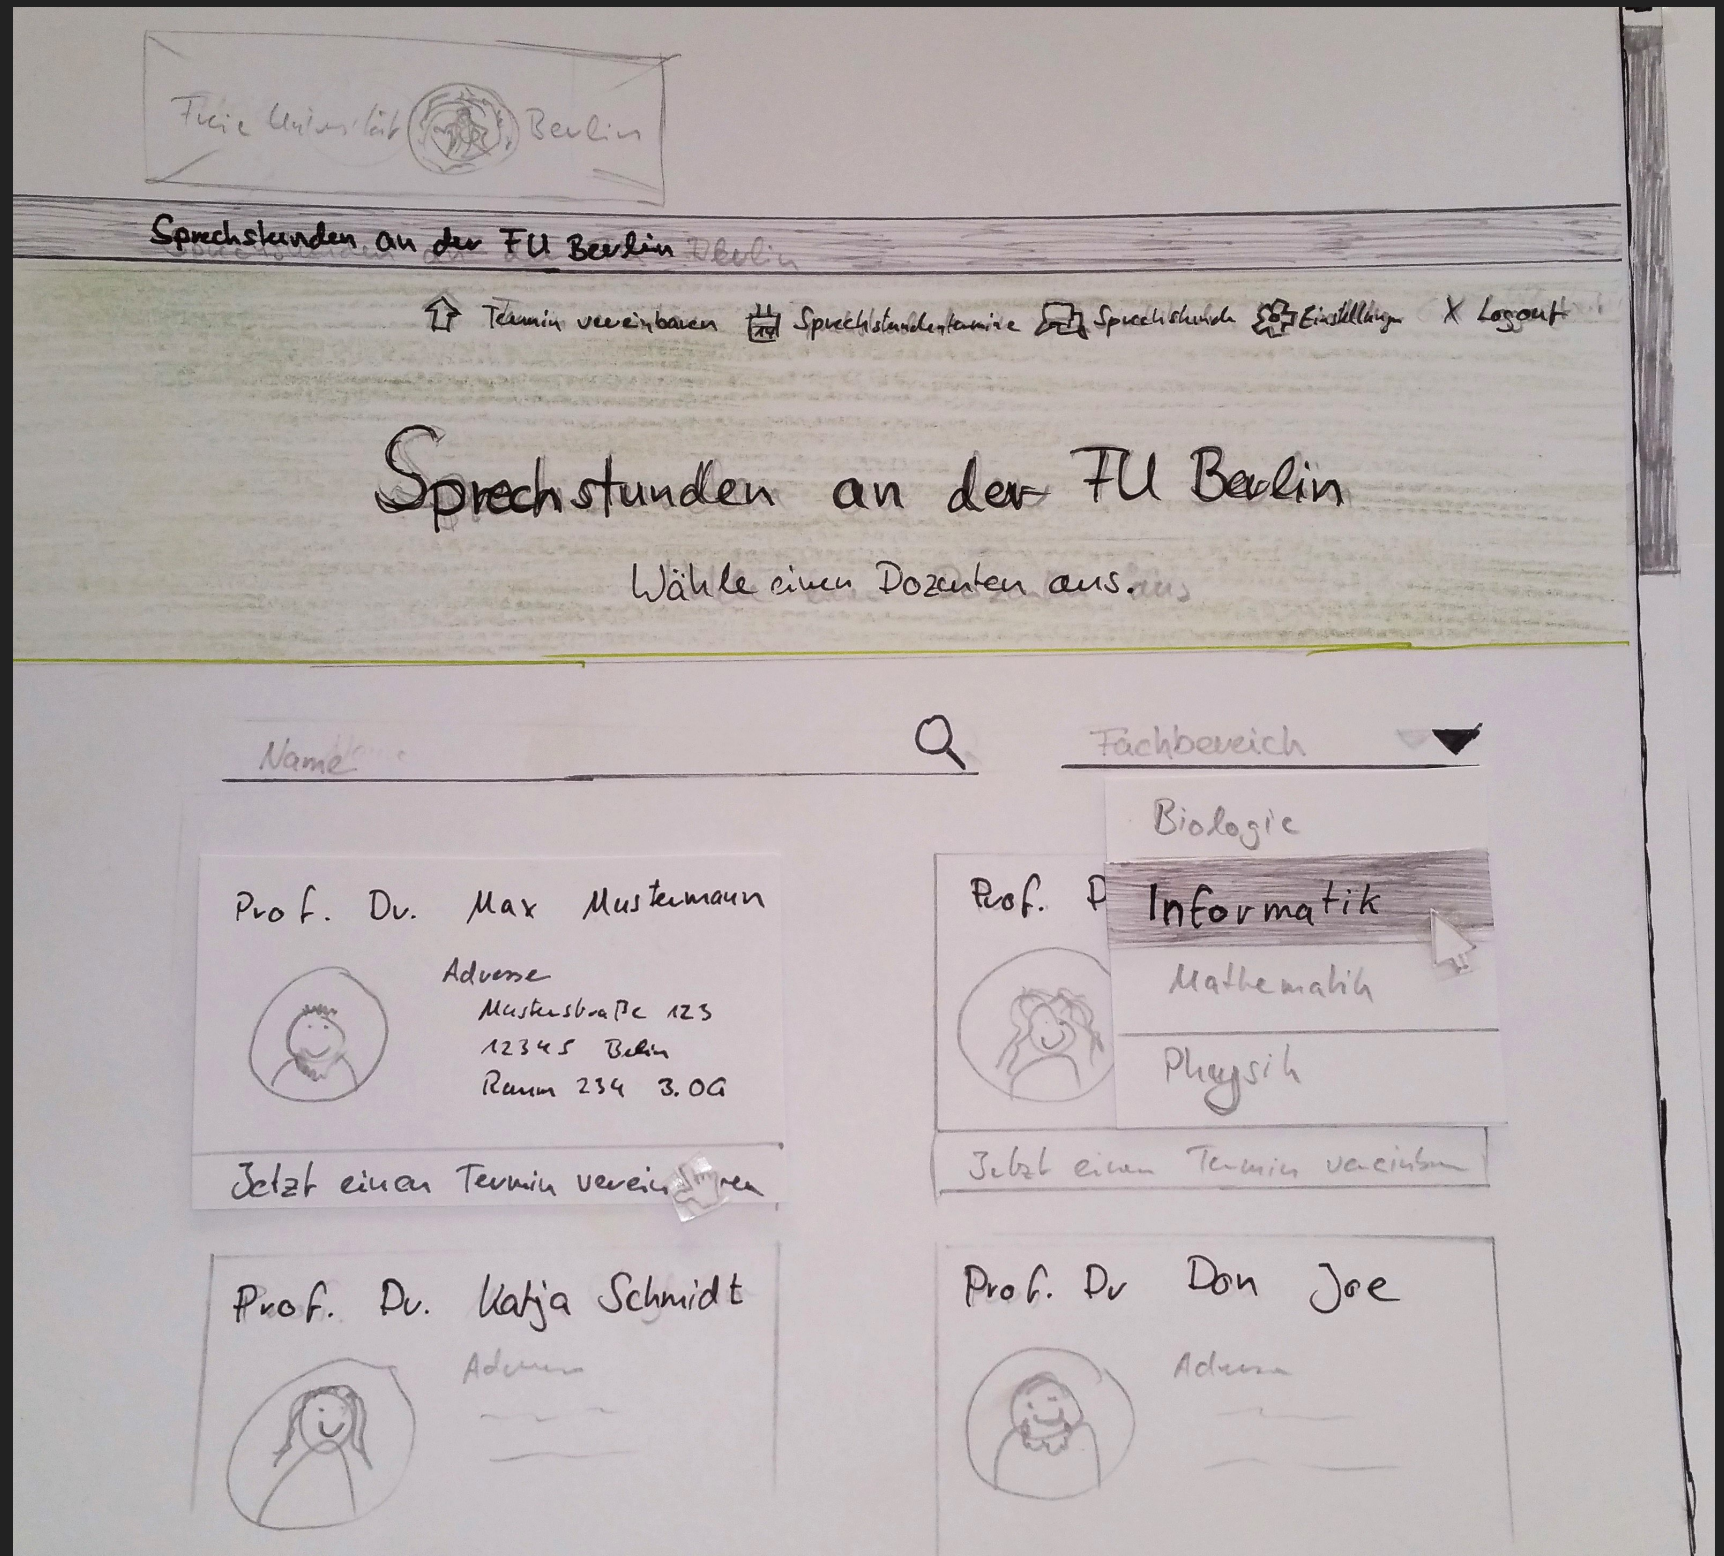 Freie Universität Berlin
Sprechstunden an der FU Berlin
Termin vereinbaren Sprechstundentermine Sprechstunde Einstellungen X Logout
Sprechstunden an der FU Berlin
Wähle einen Dozenten aus.
Name
Fachbereich
Biologie
Informatik
Mathematik
Physik
Prof. Dr. Max Mustermann
Adresse
Musterstraße 123
12345 Berlin
Raum 234 3. OG
Jetzt einen Termin vereinbaren
Prof. D
Jetzt einen Termin vereinbaren
Prof. Dr. Katja Schmidt
Adresse
Prof. Dr Don Joe
Adresse